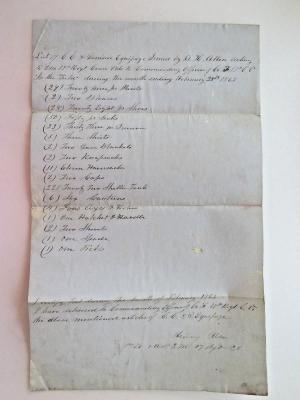 List of C. C. & Garrison Equipage Issued by H. Allen Acting
2 Lieut 17th Regt Conn Vols to Commanding Officer Co
"In the Field" during the month ending February 28th 1863
(29) Twenty nine pr Pants
(2) Two Blouses
(28) Twenty Eight pr Shoes
(50) Fifty pr Socks
(33) Thirty Three pr Drawers
(3) Three Shirts
(2) Two Gum Blankets
(2) Two Knapsacks
(11) Eleven Haversacks
(2) Two Caps
(22) Twenty Two Shelter Tents
(6) Six Canteens
(4) Four Axes &
(1) One Hatchet & Handle
(2) Two
(1) One Spade
(1) One Pick
I certify that during the month of February 1863
I have delivered to Commanding Officer Co 17th Regt C. V.
the above mentioned articles of C. C. & G. Equipage
Henry Allen
1st Lt & Act Q. M. 17 Regt C. V.